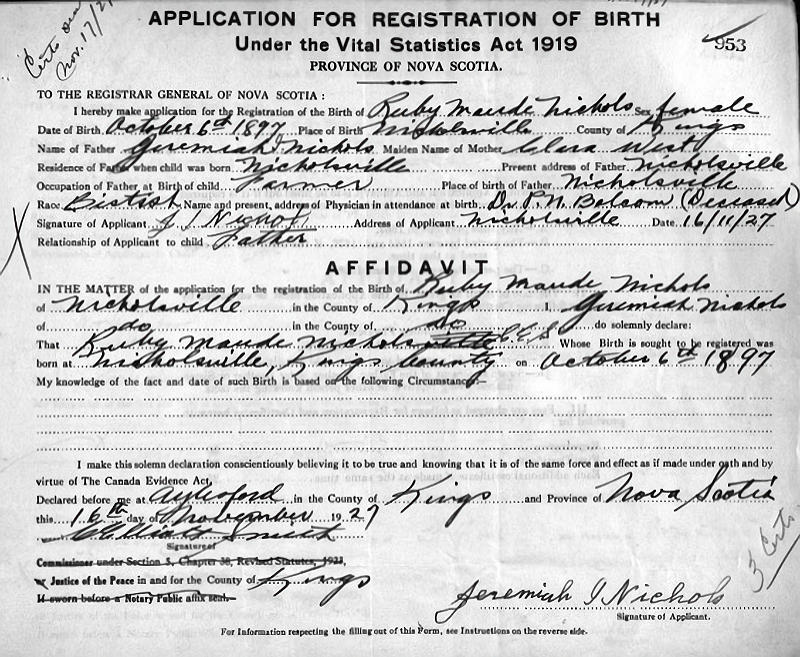 Certs
Nov. 17/27
APPLICATION FOR REGISTRATION OF BIRTH
Under the Vital Statistics Act 1919
953
PROVINCE OF NOVA SCOTIA.
TO THE REGISTRAR GENERAL OF NOVA SCOTIA :
I hereby make application for the Registration of the Birth of Ruby Maude Nichols Sex female
Date of Birth October 6th 1897 Place of Birth Nicholsville County of Kings
Name of Father Jeremiah I Nichols Maiden Name of Mother Clara West
Residence of Father when child was born Nicholsville Present address of Father Nicholsville
Occupation of Father at Birth of child Farmer Place of birth of Father Nicholsville
Race Bistish Name and present, address of Physician in attendance at birth Dr. P. N. Balcom (Deceased)
Signature of Applicant J I Nichols Address of Applicant Nicholsville Date 16/11/27
Relationship of Applicant to child Father
AFFIDAVIT
IN THE MATTER of the application for the registration of the Birth of Ruby Maude Nichols
of Nicholsville in the County of Kings I, Jeremiah Nichols
of do in the County of do do solemnly declare:
That Ruby Maude Nichols C.E.S. Whose Birth is sought to be registered was
born at Nicholsville, Kings County on October 6th 1897
My knowledge of the fact and date of such Birth is based on the following Circumstancy:-
I make this solemn declaration conscientiously believing it to be true and knowing that it is of the same force and effect as if made under oath and by
virtue of The Canada Evidence Act.
Declared before me at Aylesford in the County of Kings and Province of Nova Scotia
this 16th day of November 1927
Smith
Signature of
Commissioner under Section 5, Chapter 38, Revised Statutes, 1923,
or Justice of the Peace in and for the County of Kings
If sworn before a Notary Public affix seal.
3 Certs
Jeremiah I Nichols
Signature of Applicant.
For Information respecting the filling out of this Form, see Instructions on the reverse side.